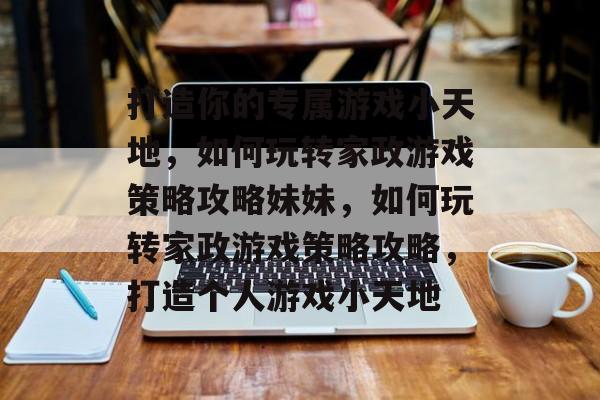 打造你的专属游戏小天
地，如何玩转家政游戏
策略攻略妹妹，如何玩
转家政游戏策略攻略，
打造个人游戏小天地